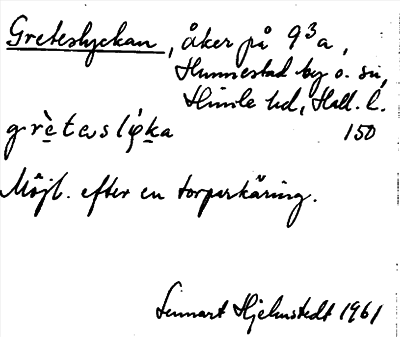 Greteslyckan, åker på 9³a,
Hunnestad by o. sn,
Himle hd, Hall. l.
grètaslýka 150
Möjl. efter en torparkäring.
Lennart Hjelmstedt 1961